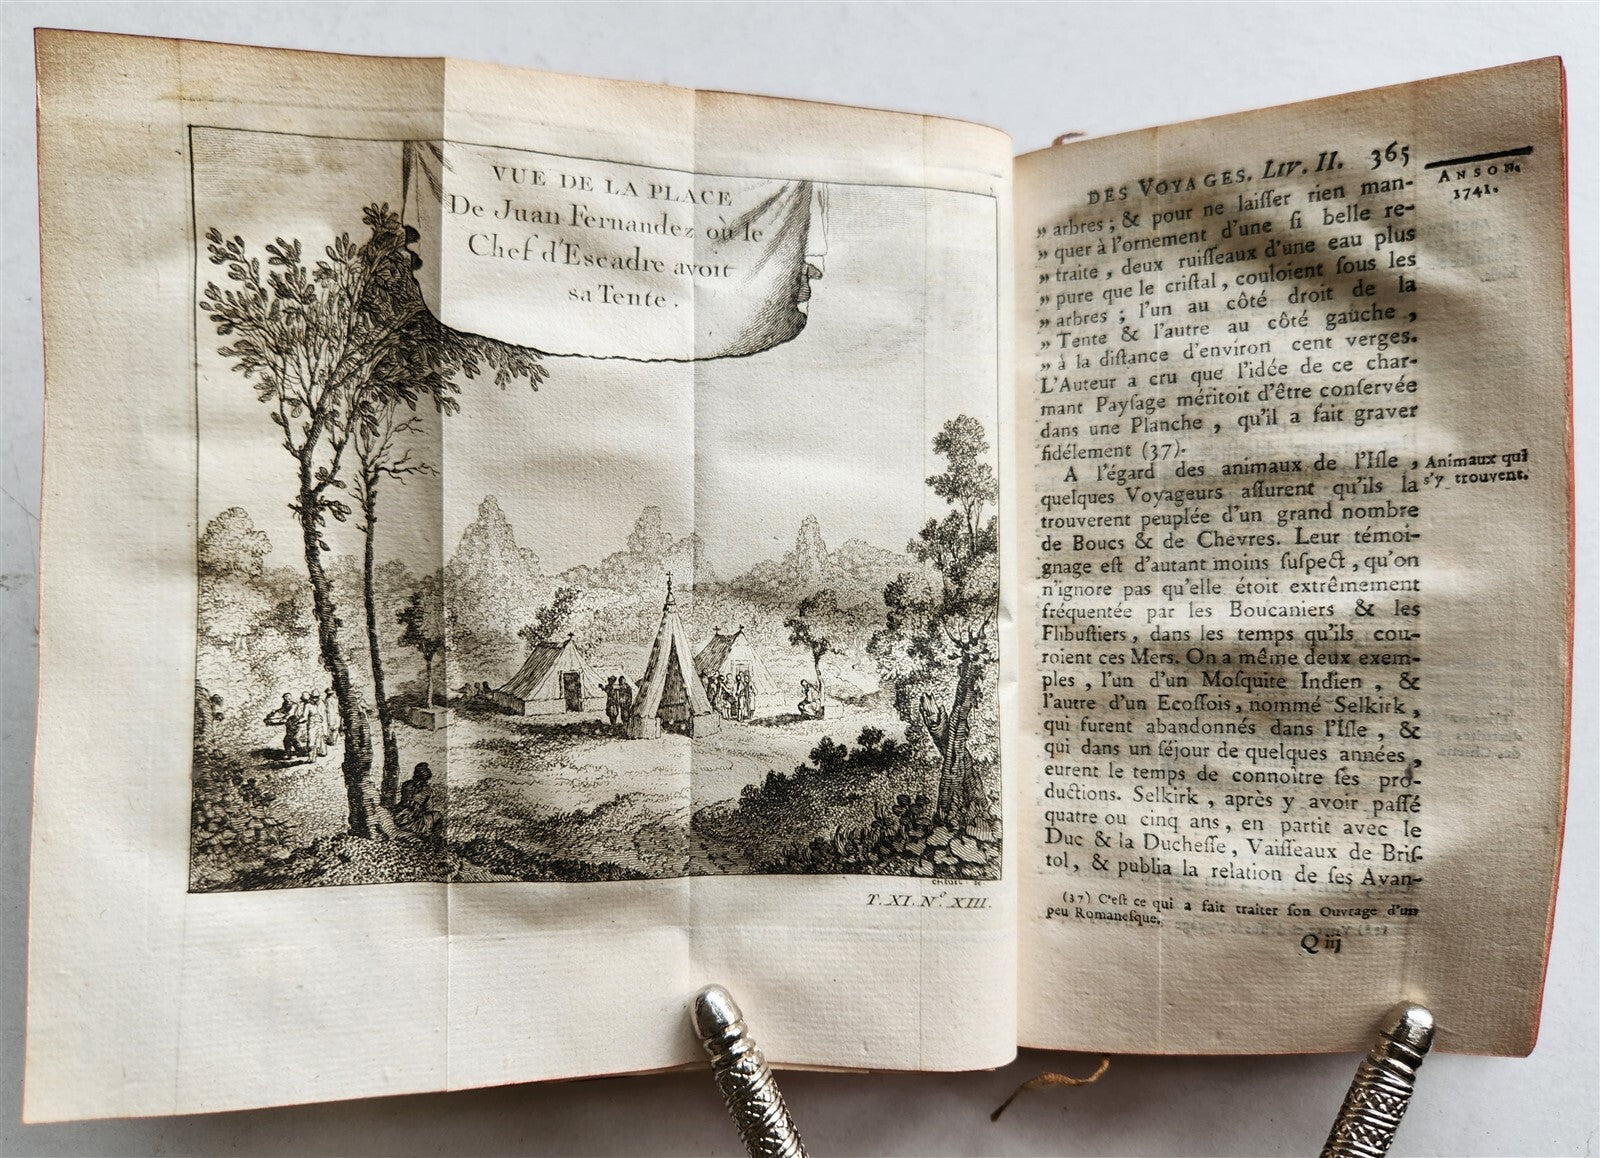 VUE DE LA PLACE
De Juan Fernandez où le
Chef d'Escadre avoit
sa Tente.
T. XI. N.º XIII.
DES VOYAGES. Liv. II. 365
ANSON.
1741.
„ arbres ; & pour ne laiſſer rien man-
„ quer à l'ornement d'une ſi belle re-
„ traite , deux ruiſſeaux d'une eau plus
„ pure que le criſtal , couloient ſous les
„ arbres ; l'un au côté droit de la
„ Tente & l'autre au côté gauche ,
„ à la diſtance d'environ cent verges.
L'Auteur a cru que l'idée de ce char-
mant Payſage méritoit d'être conſervée
dans une Planche , qu'il a fait graver
fidélement (37).
A l'égard des animaux de l'Iſle ,
Animaux qui
s'y trouvent.
quelques Voyageurs aſſurent qu'ils la
trouverent peuplée d'un grand nombre
de Boucs & de Chevres. Leur témoi-
gnage eſt d'autant moins ſuſpect , qu'on
n'ignore pas qu'elle étoit extrêmement
fréquentée par les Boucaniers & les
Flibuſtiers , dans les temps qu'ils cou-
roient ces Mers. On a même deux exem-
ples , l'un d'un Moſquite Indien , &
l'autre d'un Ecoſſois, nommé Selkirk ,
qui furent abandonnés dans l'Iſle , &
qui dans un ſéjour de quelques années ,
eurent le temps de connoître ſes pro-
ductions. Selkirk , après y avoir paſſé
quatre ou cinq ans , en partit avec le
Duc & la Ducheſſe , Vaiſſeaux de Briſ-
tol , & publia la relation de ſes Avan-
(37) C'eſt ce qui a fait traiter ſon Ouvrage d'un
peu Romaneſque.
Q iij